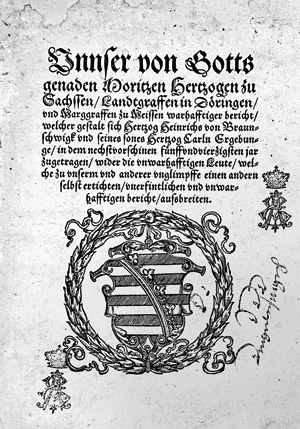 Vnnser von Gotts
genaden Moritzen Hertzogen zu
Sachssen/ Landtgraffen in Döringen/
vnd Marggraffen zu Meissen warhafftiger bericht/
welcher gestalt sich Hertzog Heinrichs von Braun-
schwigk vnd seines sones Hertzog Carln Ergebun-
ge/ in dem nechstvorschinen fünffvndvierzigsten jar
zugetragen/ wider die vnwarhafftigen Leute/ wel-
che zu vnserm vnd anderer vnglimpffe einen andern
selbst ertichten/ vnerfintlichen vnd vnwar-
hafftigen bericht/ ausbreiten.